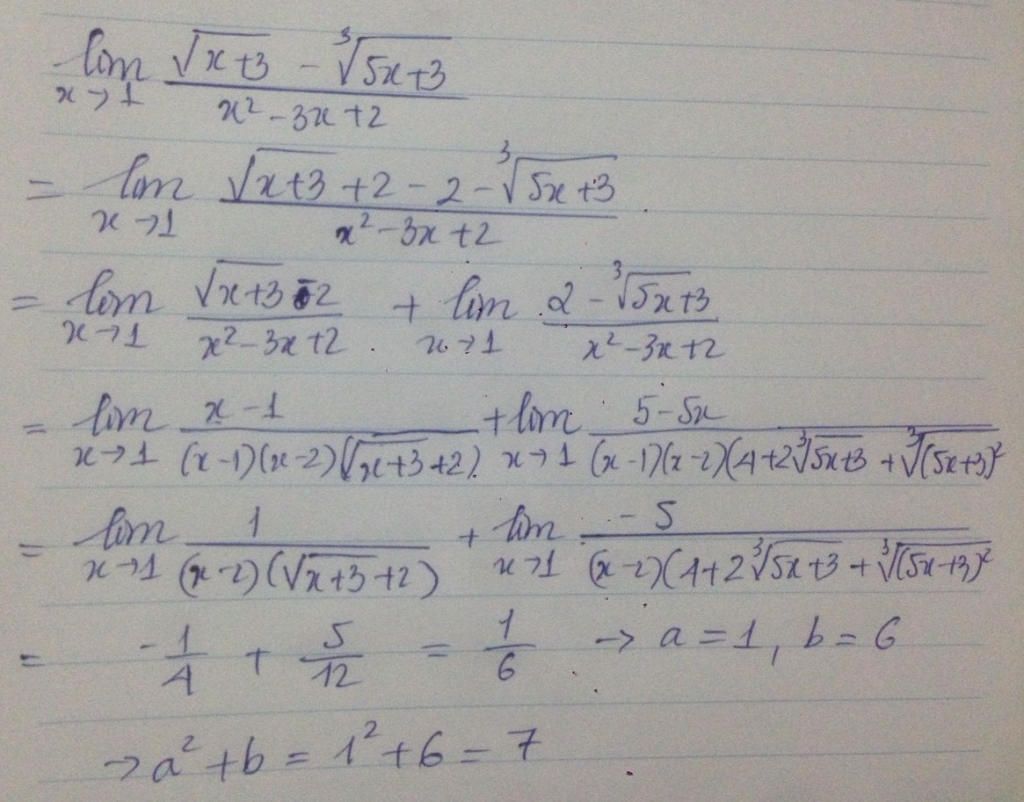 lim x→1 (√(x+3) - ∛(5x+3)) / (x² - 3x + 2)
= lim x→1 (√(x+3) + 2 - 2 - ∛(5x+3)) / (x² - 3x + 2)
= lim x→1 (√(x+3) - 2) / (x² - 3x + 2) + lim x→1 (2 - ∛(5x+3)) / (x² - 3x + 2)
= lim x→1 (x - 1) / ((x-1)(x-2)(√(x+3) + 2)) + lim x→1 (5 - 5x) / ((x-1)(x-2)(4 + 2∛(5x+3) + ∛(5x+3)²
= lim x→1 1 / ((x-2)(√(x+3) + 2)) + lim x→1 -5 / ((x-2)(4 + 2∛(5x+3) + ∛(5x+3)²
= -1/4 + 5/12 = 1/6 → a = 1, b = 6
→ a² + b = 1² + 6 = 7